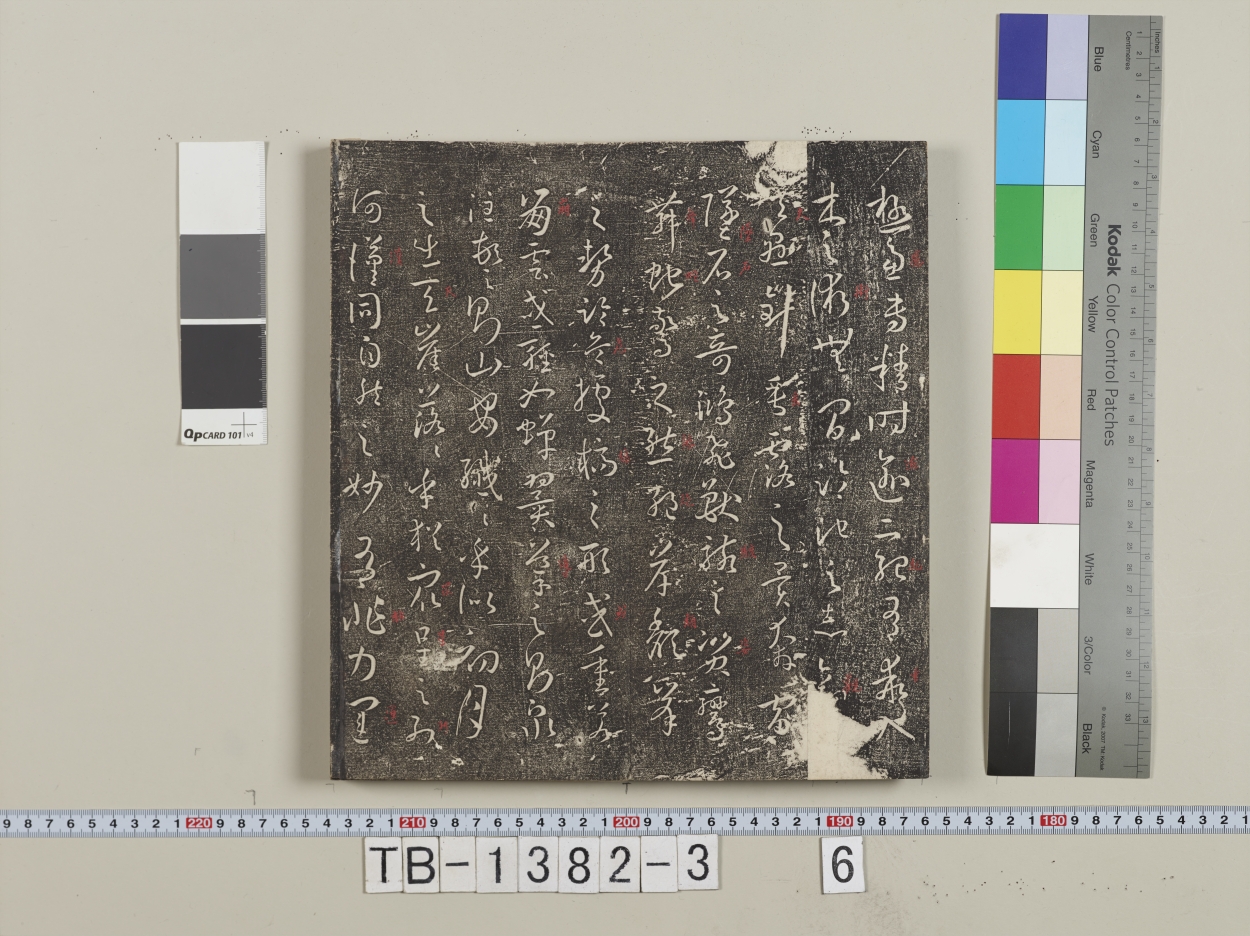 極慮專精時逾二紀有乖入
木之術無間臨池之志
夫懸針垂露之異奔雷
墜石之奇鴻飛獸駭之資鸞
舞蛇驚之態絕岸頹峯
之勢臨危據槁之形或重若
崩雲或輕如蟬翼導之則泉
注頓之則山安纖々乎似初月
之出天崖落々乎猶眾星之列
河漢同自然之妙有非力運
QPCARD 101 v4
Kodak Color Control Patches
Blue
Cyan
Green
Yellow
Red
Magenta
White
3/Color
Black
Inches
Centimetres
220
210
200
190
180
TB-1382-3
6